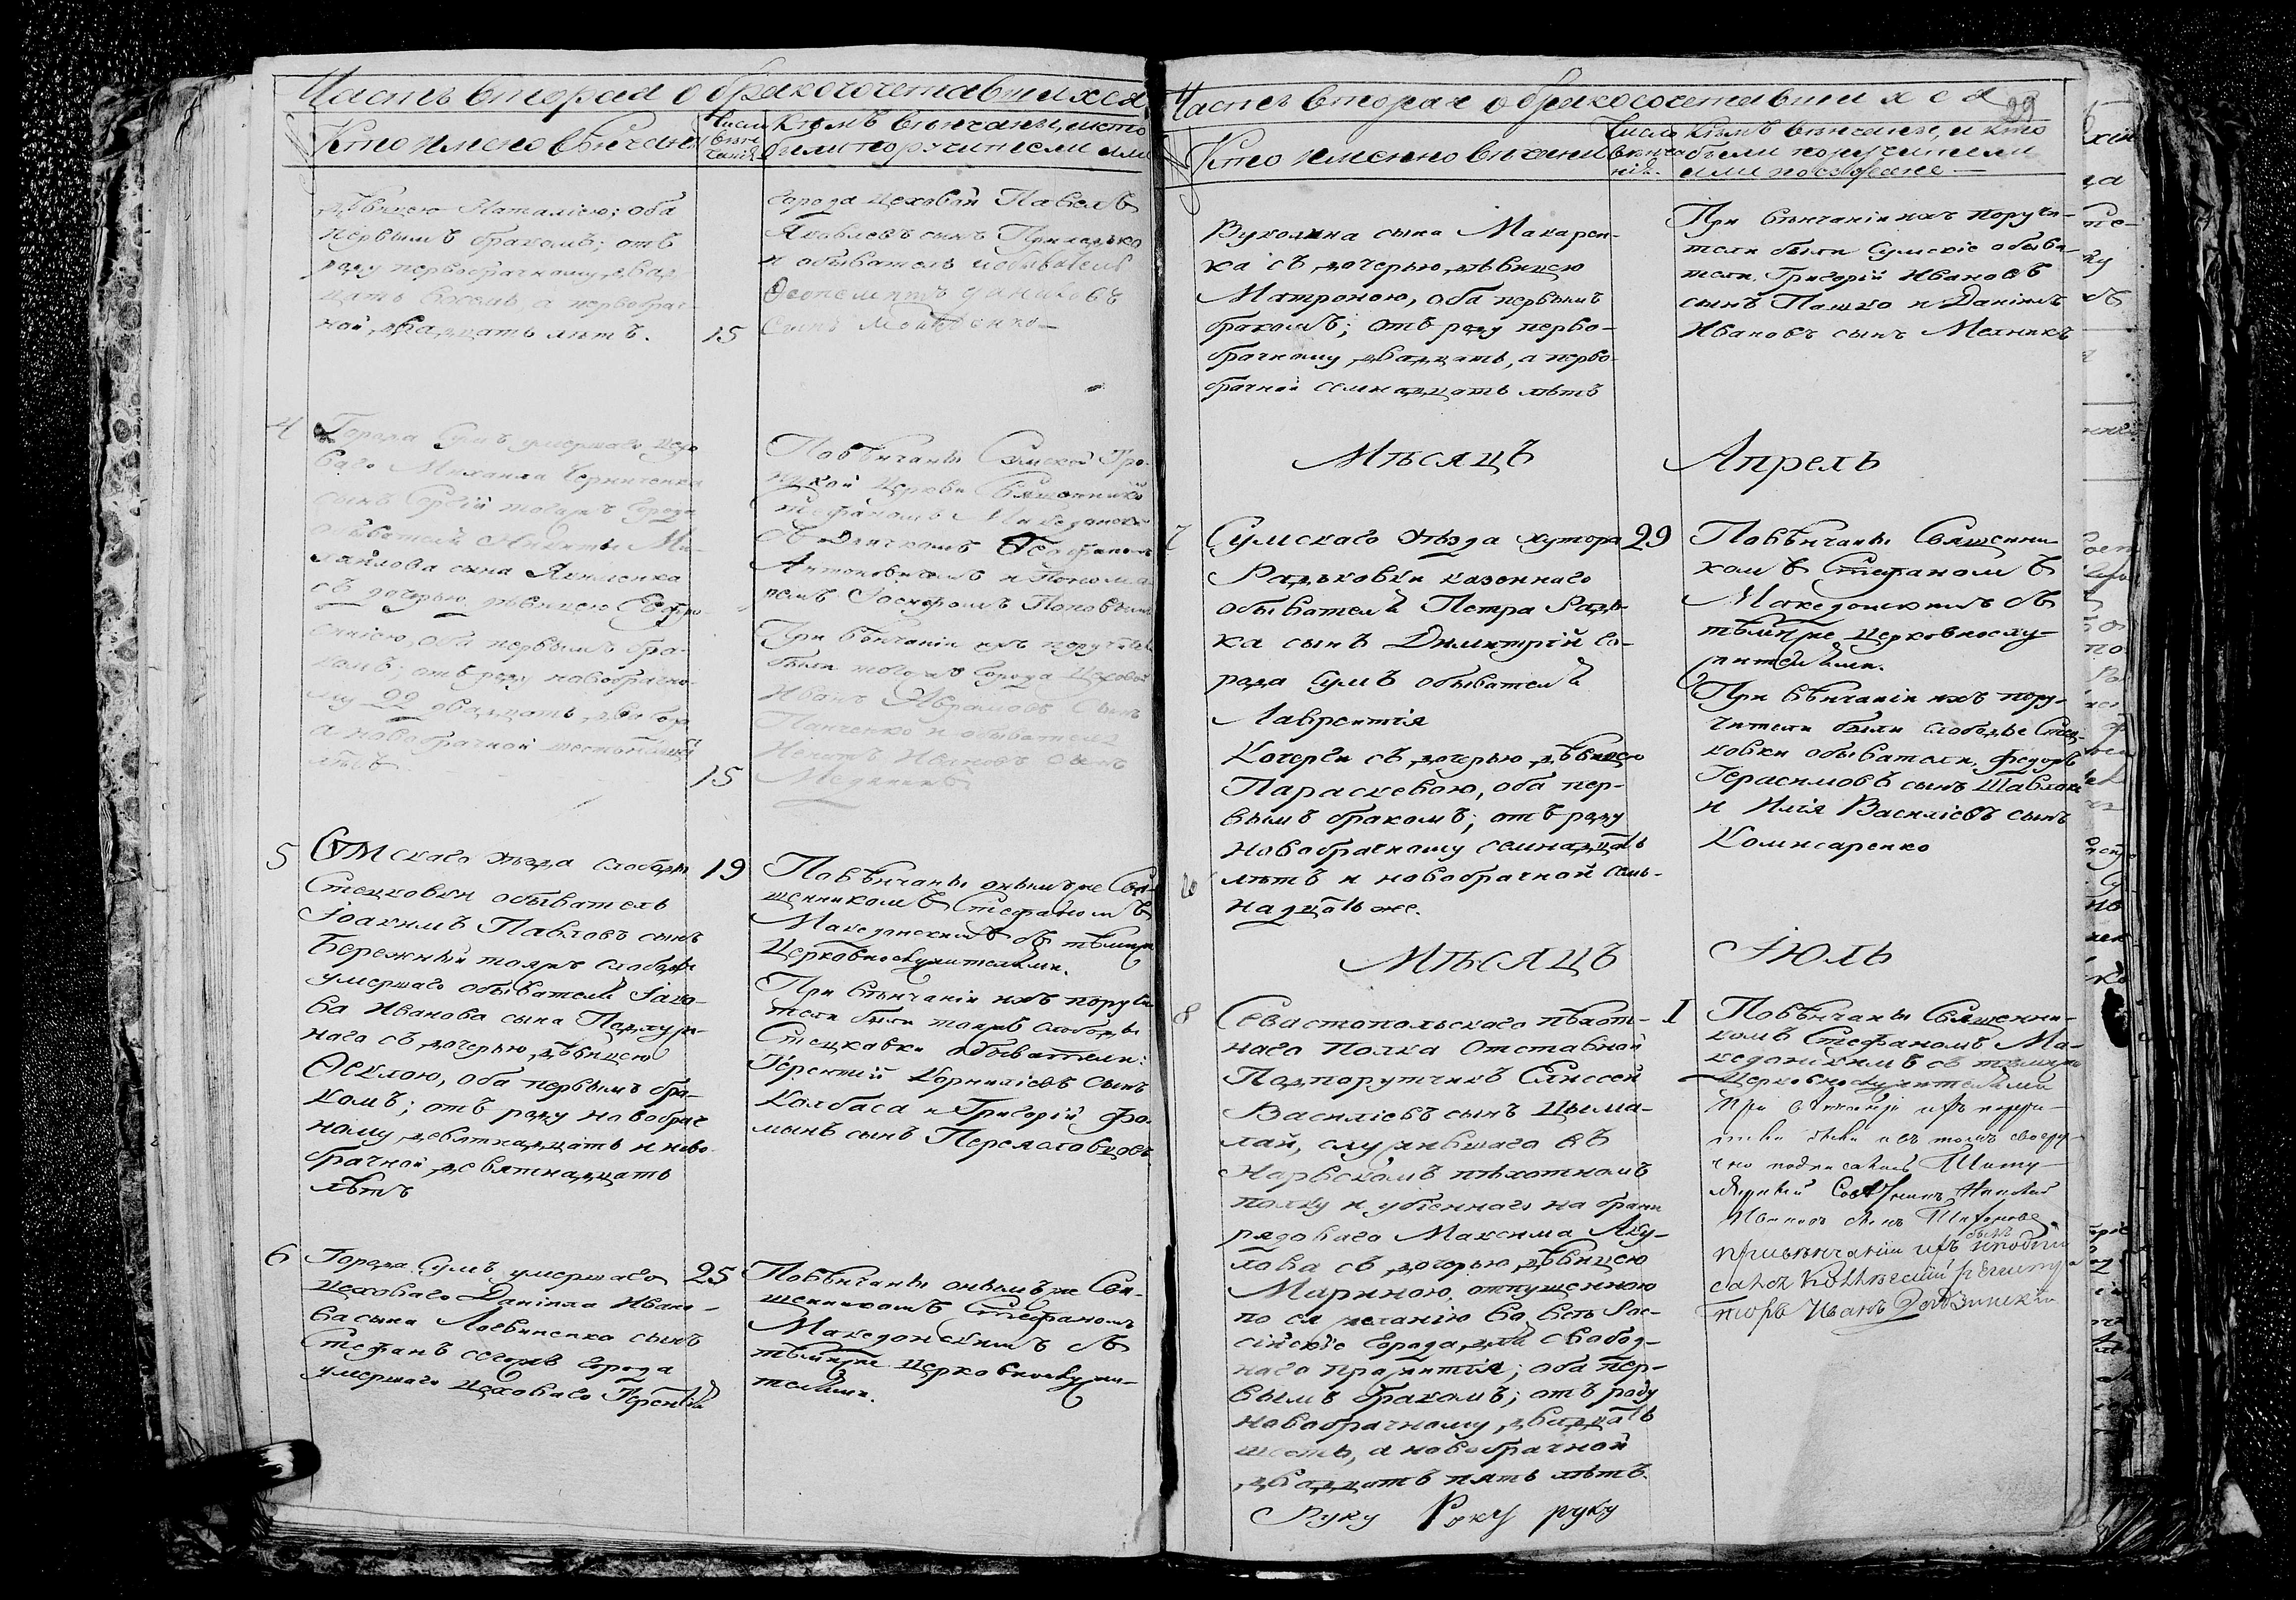 Часть вторая о бракосочетавшихся
Кто имено венчаны
Число венчанія
Кемъ венчаны, и кто
были поручители или
девицею Наталіею; оба
первымъ бракомъ; отъ
роду первобрачному, двад
цать восемь а первобрач-
ной, двадцать летъ.
15
города цеховой Павелъ
Яковлевъ сынъ
и обыватель
сынъ
4
Города Сумъ умершаго цехо
ваго Михаила Черниченка
сынъ Сергій тогожъ города
обывателя Никиты Ми-
хайлова сына
съ дочерью девицею Евфро-
синіею, оба первымъ бра-
комъ; отъ роду новобрачно-
му 22 двадцать, два года
а новобрачной шестьнадцать
летъ
15
Повенчаны Сумской Тро-
ицкой Церкви Священникомъ
Стефаномъ Македонски
съ Дьячкомъ
Антоновичемъ и Понома
ремъ Іосифомъ Поповымъ
При венчаніи ихъ поручители
были тогожъ города Цеховой
Иванъ Аврамовъ сынъ
Панченко и обыватель
Игнатъ Ивановъ сынъ
Медяникъ
5
Сумскаго уезда слободы
Стецковки обыватель
Іоакимъ Павловъ сынъ
Бережный тояжъ слободы
умершаго обывателя Іако-
ва Иванова сына
наго съ дочерью, девицею
Феклою, оба первымъ бра-
комъ; отъ роду новобрач
ному девятнадцать и ново-
брачной девятнадцать
летъ
19
Повенчаны онымъ же Свя-
щенникомъ Стефаномъ
Македонскимъ съ темиже
Церковнослужителями.
При венчаніи ихъ поручи
тели были тоежъ слободы
Стецковки обыватели:
Терентій Корниліевъ сынъ
Колбаса и Григорій Фо-
минъ сынъ Перемоловцовъ
6
Города Сумъ умершаго
цеховаго Даніила Ивано-
ва сына Логвиненко сынъ
Стефанъ сегожъ города
умершаго цеховаго Терентія
25
Повенчаны онымъ же Свя-
щенникомъ Стефаномъ
Македонскимъ съ
темиже церковнослужи-
телями.
Часть вторая о бракосочетавшихся
29
Кто именно венчаны
Число венчанія.
Кемъ венчаны, и кто
были поручители
или посаженые
Вуколина сына Макарен-
ка съ дочерью, девицею
Матроною, оба первымъ
бракомъ; отъ роду перво-
брачному двадцать, а перво-
брачной семнадцать летъ
При венчаніи ихъ поручи-
тели были Сумскіе обыва-
тели, Григорій Ивановъ
сынъ Пашко и Даніилъ
Ивановъ сынъ Мелникъ
Месяцъ Апрель
7
Сумскаго Уезда хутора
Радьковки казеннаго
обывателя Петра Радь-
ка сынъ Димитрій го-
рода Сумъ обывателя
Лаврентія
Кочерги съ дочерью, девицею
Параскевою, оба пер-
вымъ бракомъ; отъ роду
новобрачному семнадцать
летъ и новобрачной семь-
надцать же.
29
Повенчаны Священни-
комъ Стефаномъ
Македонскимъ съ
темиже церковнослу-
жителями.
При венчаніи ихъ пору-
чители были слободы Стец-
ковки обыватели, Федоръ
Герасимовъ сынъ
и Илія Василіевъ сынъ
Комисаренко
Месяцъ Іюль
8
Севастопольскаго пехот-
наго Полка Отставной
Подпорутчикъ Елиссей
Василіевъ сынъ Цыма-
лай, служившаго въ
Нарвскомъ пехотномъ
полку и убіеннаго на брани
рядоваго Максима Аку-
лова съ дочерью девицею
Мариною, отпущенною
по ея желанію во все Рос-
сійскіе города, для свобод-
наго прожитія; оба пер-
вымъ бракомъ; отъ роду
новобрачному, двадцать
шесть, а новобрачной
двадцать пять летъ.
Руку Руку руку
1
Повенчаны Священни-
комъ Стефаномъ Ма-
кедонскимъ съ темиже
Церковнослужителями
При венчаніи ихъ поручи-
тели были и въ томъ своеру-
чно подписались Титу-
лярный Советникъ Николай
Ивановъ сынъ
при венчаніи ихъ былъ и подпи
сался Коллежскій Регистра
торъ Иванъ